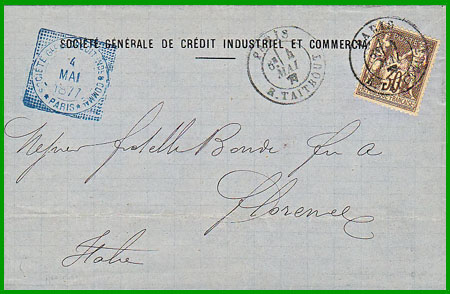 SOCIÉTÉ GÉNÉRALE DE CRÉDIT INDUSTRIEL ET COMMERCIAL
4
MAI
1877
PARIS
PARIS
4
MAI
77
R. TAITBOUT
PARIS
30
fratelli Bondi fu A
Florence
Italie